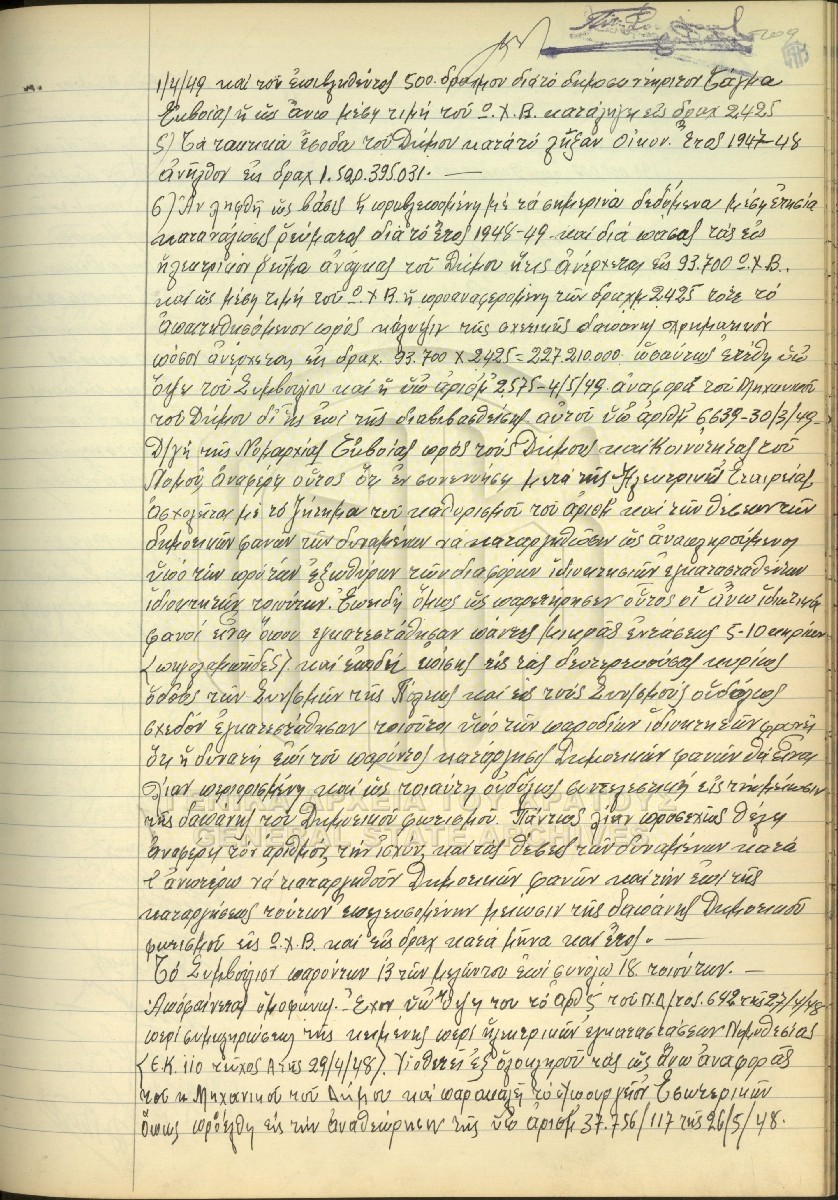 1/4/49 καὶ τοῦ ἐπιβληθέντος 500 δράχμου διὰ τὸ δημοσυντήρητον Τάγμα
Εὐβοίας ἡ ὡς ἄνω μέση τιμὴ τοῦ Ω.Χ.Β. κατάληγη εἰς δραχ 2425
5) Τὰ τακτικὰ ἔσοδα τοῦ Δήμου κατὰ τὸ λῆξαν Οἰκον. Ἔτος 1947-48
ἀνῆλθον εἰς δραχ 1.590.395.031. —
6) Ἂν ληφθῇ ὡς βάσις ἡ προβλεπομένη μὲ τὰ σημερινὰ δεδόμενα μέση ἐτησία
κατανάλωσις ρεύματος διὰ τὸ ἔτος 1948-49 καὶ διὰ πάσας τὰς εἰς
ἠλεκτρικὸν ρεῦμα ἀνάγκας τοῦ Δήμου ἥτις ἀνέρχεται εἰς 93.700 Ω.Χ.Β.
καὶ ὡς μέση τιμὴ τοῦ Ω.Χ.Β ἡ προαναφερομένη τῶν δραχμ 2425 τότε τὸ
ἀπαιτηθησόμενον πρὸς κάλυψιν τῆς σχετικῆς δαπάνης χρηματικὸν
ποσὸν ἀνέρχεται εἰς δραχ. 93.700 Χ 2425 = 227.210.000 ὡσαύτως ἐτέθη ὑπ'
ὄψει τοῦ Συμβουλίου καὶ ἡ ὑπ' ἀριθμ 2575-4/5/49 ἀναφορὰ τοῦ Μηχανικοῦ
τοῦ Δήμου δι' ἧς ἐπὶ τῆς διαβιβασθείσης αὐτοῦ ὑπ' ἀριθμ 6639-30/3/49-
Δ/γῆ τῆς Νομαρχίας Εὐβοίας πρὸς τοὺς Δήμους καὶ Κοινότητας τοῦ
Νομοῦ, ἀναφέρη οὗτος ὅτι ἐν συνεννοήσει μετὰ τῆς Ἠλεκτρικῆς Ἑταιρείας,
ἀσχολῆται μὲ τὸ ζήτημα τοῦ καθορισμοῦ τοῦ ἀριθμ καὶ τῶν θέσεων τῶν
δημοτικῶν φανῶν τῶν δυναμένων νὰ καταργηθῶσιν ὡς ἀναπληρούμενοι
ὑπὸ τῶν πρὸ τῶν ἐξωθύρων τῶν διαφόρων ἰδιοκτησιῶν ἐγκατασταθέντων
ἰδιοκτητῶν τοιούτων. Ἐπειδὴ ὅμως ὡς παρετήρησεν οὗτος οἱ ἄνω ἰδιωτικοὶ
φανοὶ εἶναι ὅπου ἐγκατεστάθησαν πάντες μικρᾶς ἐντάσεως 5-10 κηρίων
(πυγολαμπῆδες) καὶ ἐπειδὴ ἐπίσης εἰς τὰς δευτερευούσας κυρίως
ὁδοὺς τῶν Συν/σμῶν τῆς Πόλεως καὶ εἰς τοὺς Συν/σμοὺς οὐδόλως
σχεδὸν ἐγκατεστάθησαν τοιοῦτοι ὑπὸ τῶν παροδίων ἰδιοκτητῶν φρονεῖ
ὅτι ἡ δυνατὴ ἐπὶ τοῦ παρόντος κατάργησις Δημοτικῶν φανῶν θὰ εἶναι
λίαν περιορισμένη καὶ ὡς τοιαύτη οὐδόλως συντελεστικὴ εἰς τὴν μείωσιν
τῆς δαπάνης τοῦ Δημοτικοῦ φωτισμοῦ. Πάντως λίαν προσεχῶς θέλη
ἀναφέρη τὸν ἀριθμόν, τὴν ἰσχὺν καὶ τὰς θέσεις τῶν δυναμένων κατὰ
τ' ἀνωτέρω νὰ καταργηθοῦν Δημοτικῶν φανῶν καὶ τὴν ἐπὶ τῆς
καταργήσεως τούτων ἐπελευσομένην μείωσιν τῆς δαπάνης Δημοτικοῦ
φωτισμοῦ εἰς Ω.Χ.Β. καὶ εἰς δραχ κατὰ μῆνα καὶ ἔτος. —
Τὸ Συμβούλιον παρόντων 13 τῶν μελῶν του ἐπὶ συνόλω 18 τοιούτων. —
Ἀποφαίνεται ὁμοφώνως. Ἔχον ὑπ' ὄψη του τὸ ἄρθρ. 5 τοῦ Ν.Δ/τος. 642 τῆς 27/4/48
περὶ συμπληρώσεως τῆς κειμένης περὶ ἠλεκτρικῶν ἐγκαταστάσεων Νομοθεσίας
(Ε.Κ. 110 τεῦχος Α τῆς 29/4/48). Υἱοθετεῖ ἐξ ὁλοκλήρου τὰς ὡς ἄνω ἀναφορὰς
τοῦ κ Μηχανικοῦ τοῦ Δήμου καὶ παρακαλῆ τὸ ὑπουργεῖον Ἐσωτερικῶν
ὅπως προέλθῃ εἰς τὴν ἀναθεώρησιν τῆς ὑπ' ἀριθμ 37.756/117 τῆς 26/5/48.
ΓΕΝΙΚΑ ΑΡΧΕΙΑ ΤΟΥ ΚΡΑΤΟΥΣ
GENERAL STATE ARCHIVES